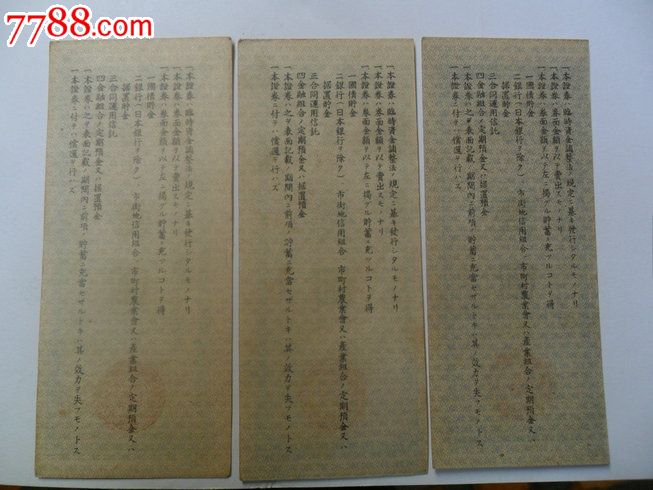 7788.com
一本證券ハ臨時資金調整法ノ規定ニ基キ發行シタルモノナリ
一本證券ハ券面金額ヲ以テ賣出スモノナリ
一本證券ハ券面金額ヲ以テ左ニ揭グル貯蓄ニ充ツルコトヲ得
一國債貯金
二銀行(日本銀行ヲ除ク)市街地信用組合、市町村農業會又ハ產業組合ノ定期預金又ハ
据置貯金
三合同運用信託
四金融組合ノ定期預金又ハ据置預金
一本證券ハ之ヲ表面記載ノ期間內ニ前項ノ貯蓄ニ充當セザルトキハ其ノ效力ヲ失フモノトス
一本證券ニ付テハ償還ヲ行ハズ
一本證券ハ臨時資金調整法ノ規定ニ基キ發行シタルモノナリ
一本證券ハ券面金額ヲ以テ賣出スモノナリ
一本證券ハ券面金額ヲ以テ左ニ揭グル貯蓄ニ充ツルコトヲ得
一國債貯金
二銀行(日本銀行ヲ除ク)市街地信用組合、市町村農業會又ハ產業組合ノ定期預金又ハ
据置貯金
三合同運用信託
四金融組合ノ定期預金又ハ据置預金
一本證券ハ之ヲ表面記載ノ期間內ニ前項ノ貯蓄ニ充當セザルトキハ其ノ效力ヲ失フモノトス
一本證券ニ付テハ償還ヲ行ハズ
一本證券ハ臨時資金調整法ノ規定ニ基キ發行シタルモノナリ
一本證券ハ券面金額ヲ以テ賣出スモノナリ
一本證券ハ券面金額ヲ以テ左ニ揭グル貯蓄ニ充ツルコトヲ得
一國債貯金
二銀行(日本銀行ヲ除ク)市街地信用組合、市町村農業會又ハ產業組合ノ定期預金又ハ
据置貯金
三合同運用信託
四金融組合ノ定期預金又ハ据置預金
一本證券ハ之ヲ表面記載ノ期間內ニ前項ノ貯蓄ニ充當セザルトキハ其ノ效力ヲ失フモノトス
一本證券ニ付テハ償還ヲ行ハズ